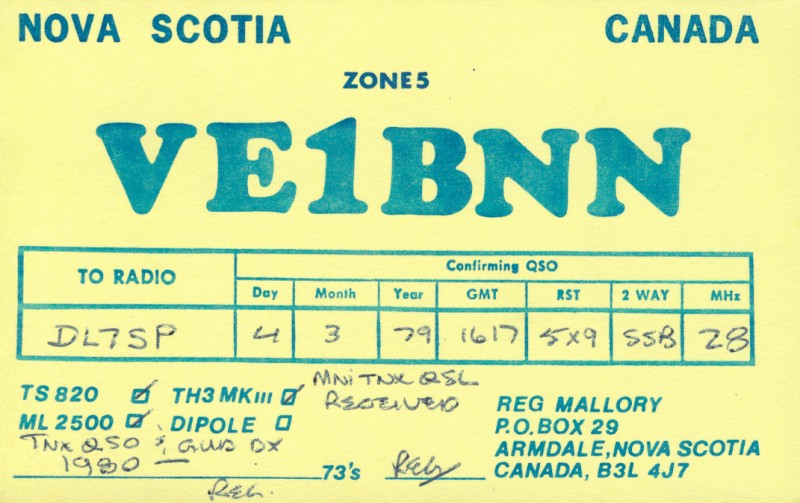 NOVA SCOTIA CANADA
ZONE 5
VE1BNN
TO RADIO Confirming QSO
Day Month Year GMT RST 2 WAY MHz
DL7SP 4 3 79 1617 5x9 SSB 28
MNI TNX QSL
TS 820 TH3 MKIII RECEIVED
REG MALLORY
ML 2500 DIPOLE P.O. BOX 29
TNX QSO & GUD DX ARMDALE, NOVA SCOTIA
1980 — 73's Reg CANADA, B3L 4J7
REG.